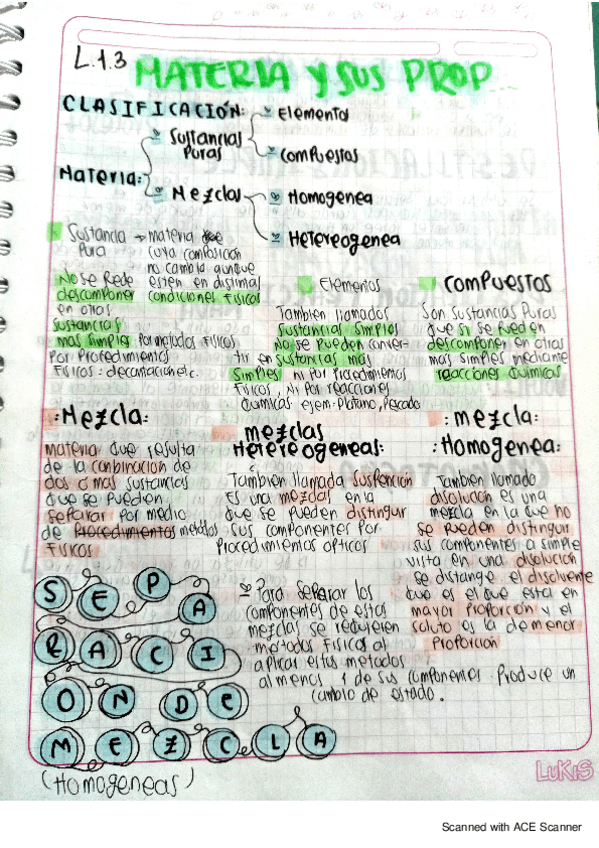 L.1.3 MATERIA Y SUS PROP...
CLASIFICACIÓN:
Elementos
Sustancias
Puras
Compuestos
Materia:
Mezclas
Homogenea
Hetereogenea
Sustancia → materia
Pura cuya composición
no cambia aunque
No se Puede esten en distintas
descomponer condiciones Físicas
en otros
Sustancias
mas simples Por metodos Físicos
Por Procedimientos
Físicos: decantacion etc.
Elementos
Tambien llamados
Sustancias Simples
No se Pueden conver-
tir en sustancias mas
Simples ni Por Procedimientos
Físicos, Ni Por reacciones
Quimicas ejem: Platano, Pescado
COMPUESTOS
Son Sustancias Puras
que si se Pueden
descomponer en otras
mas simples mediante
reacciones Quimicas
:Mezcla:
materia que resulta
de la conbinacion de
dos o mas sustancias
que se Pueden
separar Por medio
de Procedimientos metodos
Fisicos
mezclas
Hetereogeneas:
Tambien llamada Suspencion
Es una mezclas en la
que se Pueden distinguir
sus componentes Por
Procedimientos opticos
:mezcla:
:Homogenea:
Tambien llamado
disolucion es una
mezcla en la que no
se Pueden distinguir
sus componentes a simple
vista en una disolucion
se distange el disolvente
que es el que esta en
mayor Proporción y el
soluto es la de menor
Proporcion
SEPA
RACI
ON DE
MEZCLA
(Homogeneas)
Para separar los
componentes de estas
mezclas se requieren
metodos Fisicos al
aplicar estos metodos
al menos 1 de sus componentes Produce un
cambio de estado.
LUKIS
Scanned with ACE Scanner